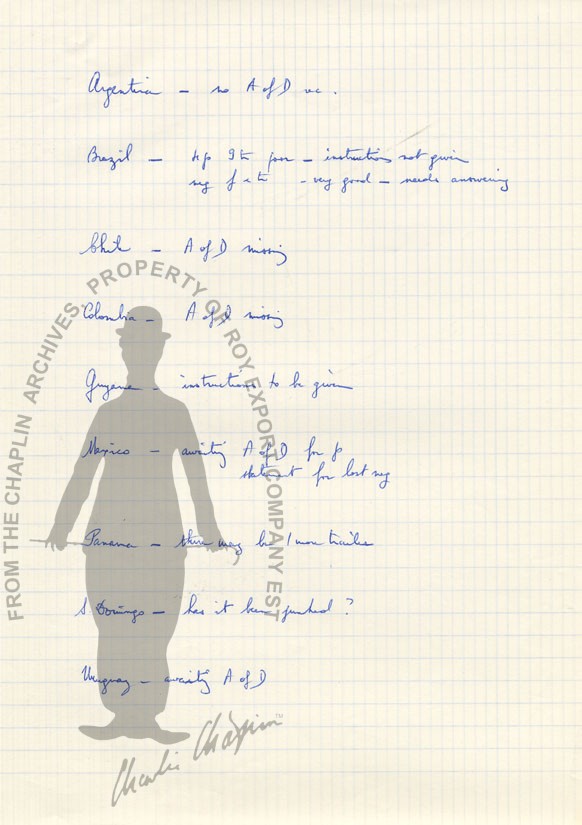 Argentina – no A of D rec.
Brazil – neg 9th poor – instructions not given
neg – very good – needs answering
Chile – A of D missing
Colombia – A of D missing
Guyana – instructions to be given
Mexico – awaiting A of D for p
statement for lost neg
Panama – there may be 1 more trailer
S. Domingo – has it been junked?
Uruguay – awaiting A of D
FROM THE CHAPLIN ARCHIVES, PROPERTY OF ROY EXPORT COMPANY EST
Charlie Chaplin™